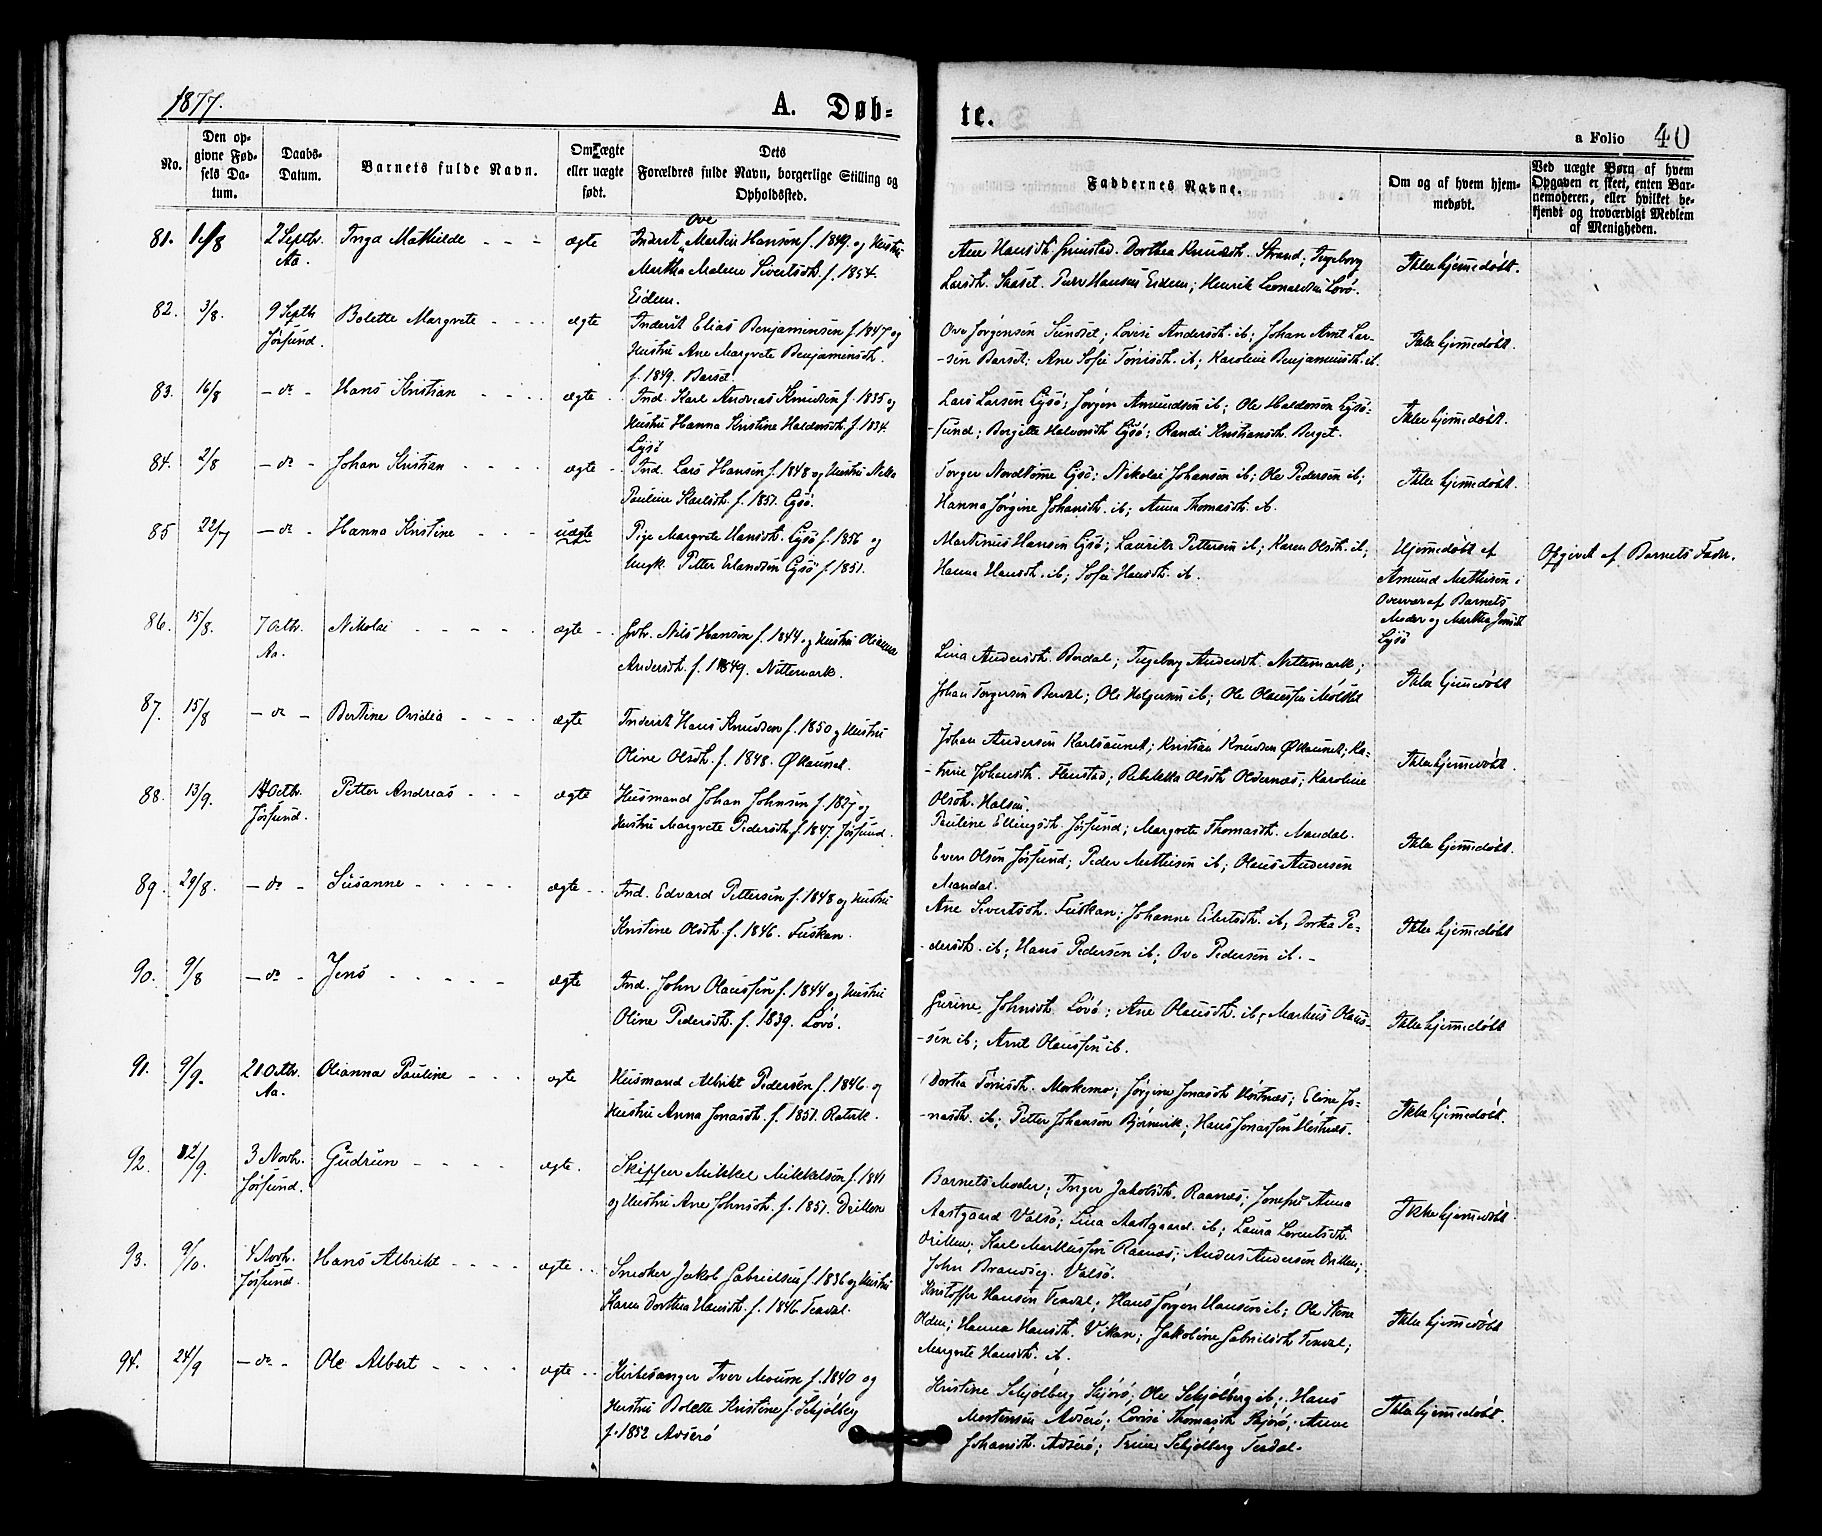 1877.
A. Døb-
te.
a Folio 40
No.
Den op-
givne Fød-
sels Da-
tum.
Daabs-
Datum.
Barnets fulde Navn.
Om ægte
eller uægte
født.
Dets
Forældres fulde Navn, borgerlige Stilling og
Opholdssted.
Faddernes Navne.
Om og af hvem hjem-
medøbt.
Ved uægte Børn af hvem
Opgaven er skeet, enten Bar-
nemoderen, eller hvilket be-
kjendt og troværdigt Medlem
af Menigheden.
81. 1/8 2 Septbr. Aa. Inga Mathilde - - - ægte
Ove
Inderst Martin Hansen f. 1849. og Hustru
Martha Malene Sivertsdt. f. 1854.
Eidem.
Ane Hansdt. Grinstad. Dorthea Knudsdt. Strand; Ingeborg
Larsdt. Skaset. Peter Hansen Eidem; Henrik Leonardsen Lovø.
Ikke hjemmedøbt.
82. 3/8. 9 Septb. Jøssund. Bolette Margrete - - - ægte
Inderst Elias Benjaminsen f. 1847 og
Hustru Ane Margrete Benjaminsdt.
f. 1849. Barset.
Ove Jørgensen Sundset; Lovise Andersdt. ib; Johan Arnt Lar-
-sen Barset; Ane Sofie Tørrisdt. ib; Karoline Benjaminsdt. ib.
Ikke hjemmedøbt.
83. 16/8 - do - Hans Kristian - - - ægte
Ind. Karl Andreas Knudsen f. 1835 og
Hustru Hanna Kristine Haldorsdt. f. 1834.
Lysø
Lars Larsen Lysø; Jørgen Amundsen ib; Ole Haldorsen Lysø-
-sund; Bergitte Halvorsdt. Lysø; Randi Kristiansdt. Berget.
Ikke hjemmedøbt.
84. 2/8 - do - Johan Kristian - - - ægte
Ind. Lars Hansen f. 1848 og Hustru Nella
Pauline Karlsdt. f. 1851. Lysø.
Torger Nordtømme Lysø; Nikolai Johansen ib; Ole Pedersen ib;
Hanna Jørgine Johansdt. ib; Anna Thomasdt. ib.
Ikke hjemmedøbt.
85 22/7 - do - Hanna Kristine - - - uægte
Pige Margrete Hansdt. Lysø f. 1856 og
Ungk. Petter Erlandsen Lysø f. 1851.
Martinus Hansen Lysø; Lauritz Pettersen ib; Karen Olsdt. ib;
Hanna Hansdt. ib; Sofie Hansdt. ib.
Hjemmedøbt af
Amund Mathisen i
Overvær af Barnets
Moder og Martha
Lysø
Opgivet af Barnets Fader.
86. 15/8. 7 Octbr. Aa. Nikolai - - - - - ægte
Nils Hansen f. 1844 og Hustru Olianna
Andersdt. f. 1849. Nittemark.
Lina Andersdt. Berdal; Ingeborg Andersdt. Nittemark;
Johan Torgersen Berdal; Ole Helgesen ib; Ole Olaussen
Ikke hjemmedøbt
87. 15/8 - do - Bertine Ovidia - - - - ægte
Inderst Hans Knudsen f. 1850 og Hustru
Oline Olsdt. f. 1848. Øksaunet.
Johan Andersen Karlsaunet; Kristian Knudsen Øksaunet; Ka-
-trine Johansdt. Fenstad; Rebekka Olsdt Oldernæs; Karoline
Olsdt. Halsen.
Ikke hjemmedøbt.
88. 13/9. 14 Octbr. Jøssund. Petter Andreas - - - ægte
Husmand Johan Johnsen f. 1827 og
Hustru Margrete Pedersdt. f. 1847. Jøssund.
Pauline Ellingsdt. Jøssund; Margrete Thomasdt. Mandal.
Even Olsen Jøssund; Peder Mathisen ib; Olaus Andersen
Mandal.
Ikke hjemmedøbt.
89. 29/8. - do - Susanne - - - - - ægte
Ind. Edvard Pettersen f. 1848 og Hustru
Kristine Olsdt. f. 1846. Fuskan.
Ane Sivertsdt. Fuskan; Johanne Eilertsdt. ib; Dorthea Pe-
-dersdt. ib; Hans Pedersen ib; Ove Pedersen ib. -
Ikke hjemmedøbt
90. 9/8 - do - Jens - - - - - ægte
Ind. John Olaussen f. 1844 og Hustru
Oline Pedersdt. f. 1839. Lovø.
Gurine Johnsdt. Lovø; Ane Olausdt. ib; Markus Olaus-
-sen ib; Arnt Olaussen ib.
Ikke hjemmedøbt
91. 9/9. 21 Octbr. Aa. Olianna Pauline - - - ægte
Husmand Albrikt Pedersen f. 1846 og
Hustru Anna Jonasdt. f. 1851. Ratvik.
Dorthea Tørrisdt. Morkemo; Jørgine Jonasdt Hestnæs; Eline Jo-
-nasdt. ib; Petter Johansen Bjørnvik; Hans Jonassen Hestnæs.
Ikke hjemmedøbt.
92. 12/9. 3 Novbr. Jøssund. Gudrun - - - - ægte.
Skipper Mikkel Mikkelsen f. 1841
og Hustru Ane Johnsdt. f. 1851. Deillen
Barnets Moder; Inger Jakobsdt. Raanæs; Josefie Anna
Aastgaard Valsø; Lina Aastgaard ib; Laura Lorentsdt.
Drillen; Karl Markussen Raanæs; Anders Andersen Drillen;
John Brandseg. Valsø.
Ikke hjemmedøbt.
93. 9/10. 4 Novbr. Jøssund. Hans Albrikt - - - - ægte
Snedker Jakob Gabrielsen f. 1836 og Hustru
Karen Dorthea Hansdt. f. 1846 Teodal.
Kristoffer Hansen Teodal; Hans Jørgen Hansen ib; Ole Stene
Olden; Hanna Hansdt. Vikan; Jakobine Gabrielsdt Teodal;
Margrete Hansdt. ib.
Ikke hjemmedøbt
94. 24/9 - do - Ole Albert - - - - ægte
Kirkesanger Iver Moum f. 1840 og
Hustru Bolette Kristine f. Schjølberg
f. 1852 Asserø
Kristine Schjølberg Skjørø; Ole Schjølberg ib; Hans
Mortensen Asserø; Lovise Thomasdt Skjørø; Anne
Johansdt. Asserø; Trine Schjølberg Teodal.
Ikke hjemmedøbt.